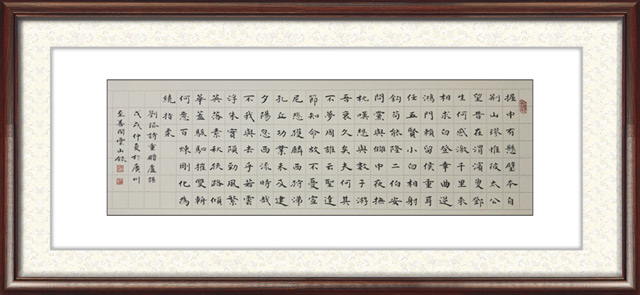 握中有懸璧本自
荊山璆惟彼太公
望昔在渭濱叟鄧
生何感激千里來
相求白登幸曲逆
鴻門賴留侯重耳
任五賢小白相射
鉤苟能隆二伯安
問黨與讎中夜撫
枕嘆想與數子游
吾衰久矣夫何其
不夢周誰云聖達
節知命故不憂宣
尼悲獲麟西狩涕
孔丘功業未及建
夕陽忽西流時哉
不我與去乎若雲
浮朱實隕勁風繁
英落素秋狹路傾
華蓋駭駟摧雙輈
何意百煉剛化為
繞指柔
劉琨詩重贈盧諶
戊戌仲夏於廣州
至善閣雲山